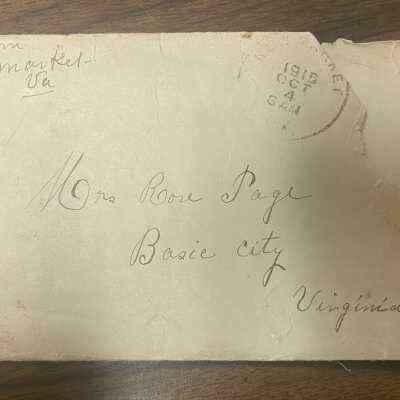 market
Va
NEW MARKET
1915
OCT
4
6 AM
Mrs Rose Page
Basic city
Virginia